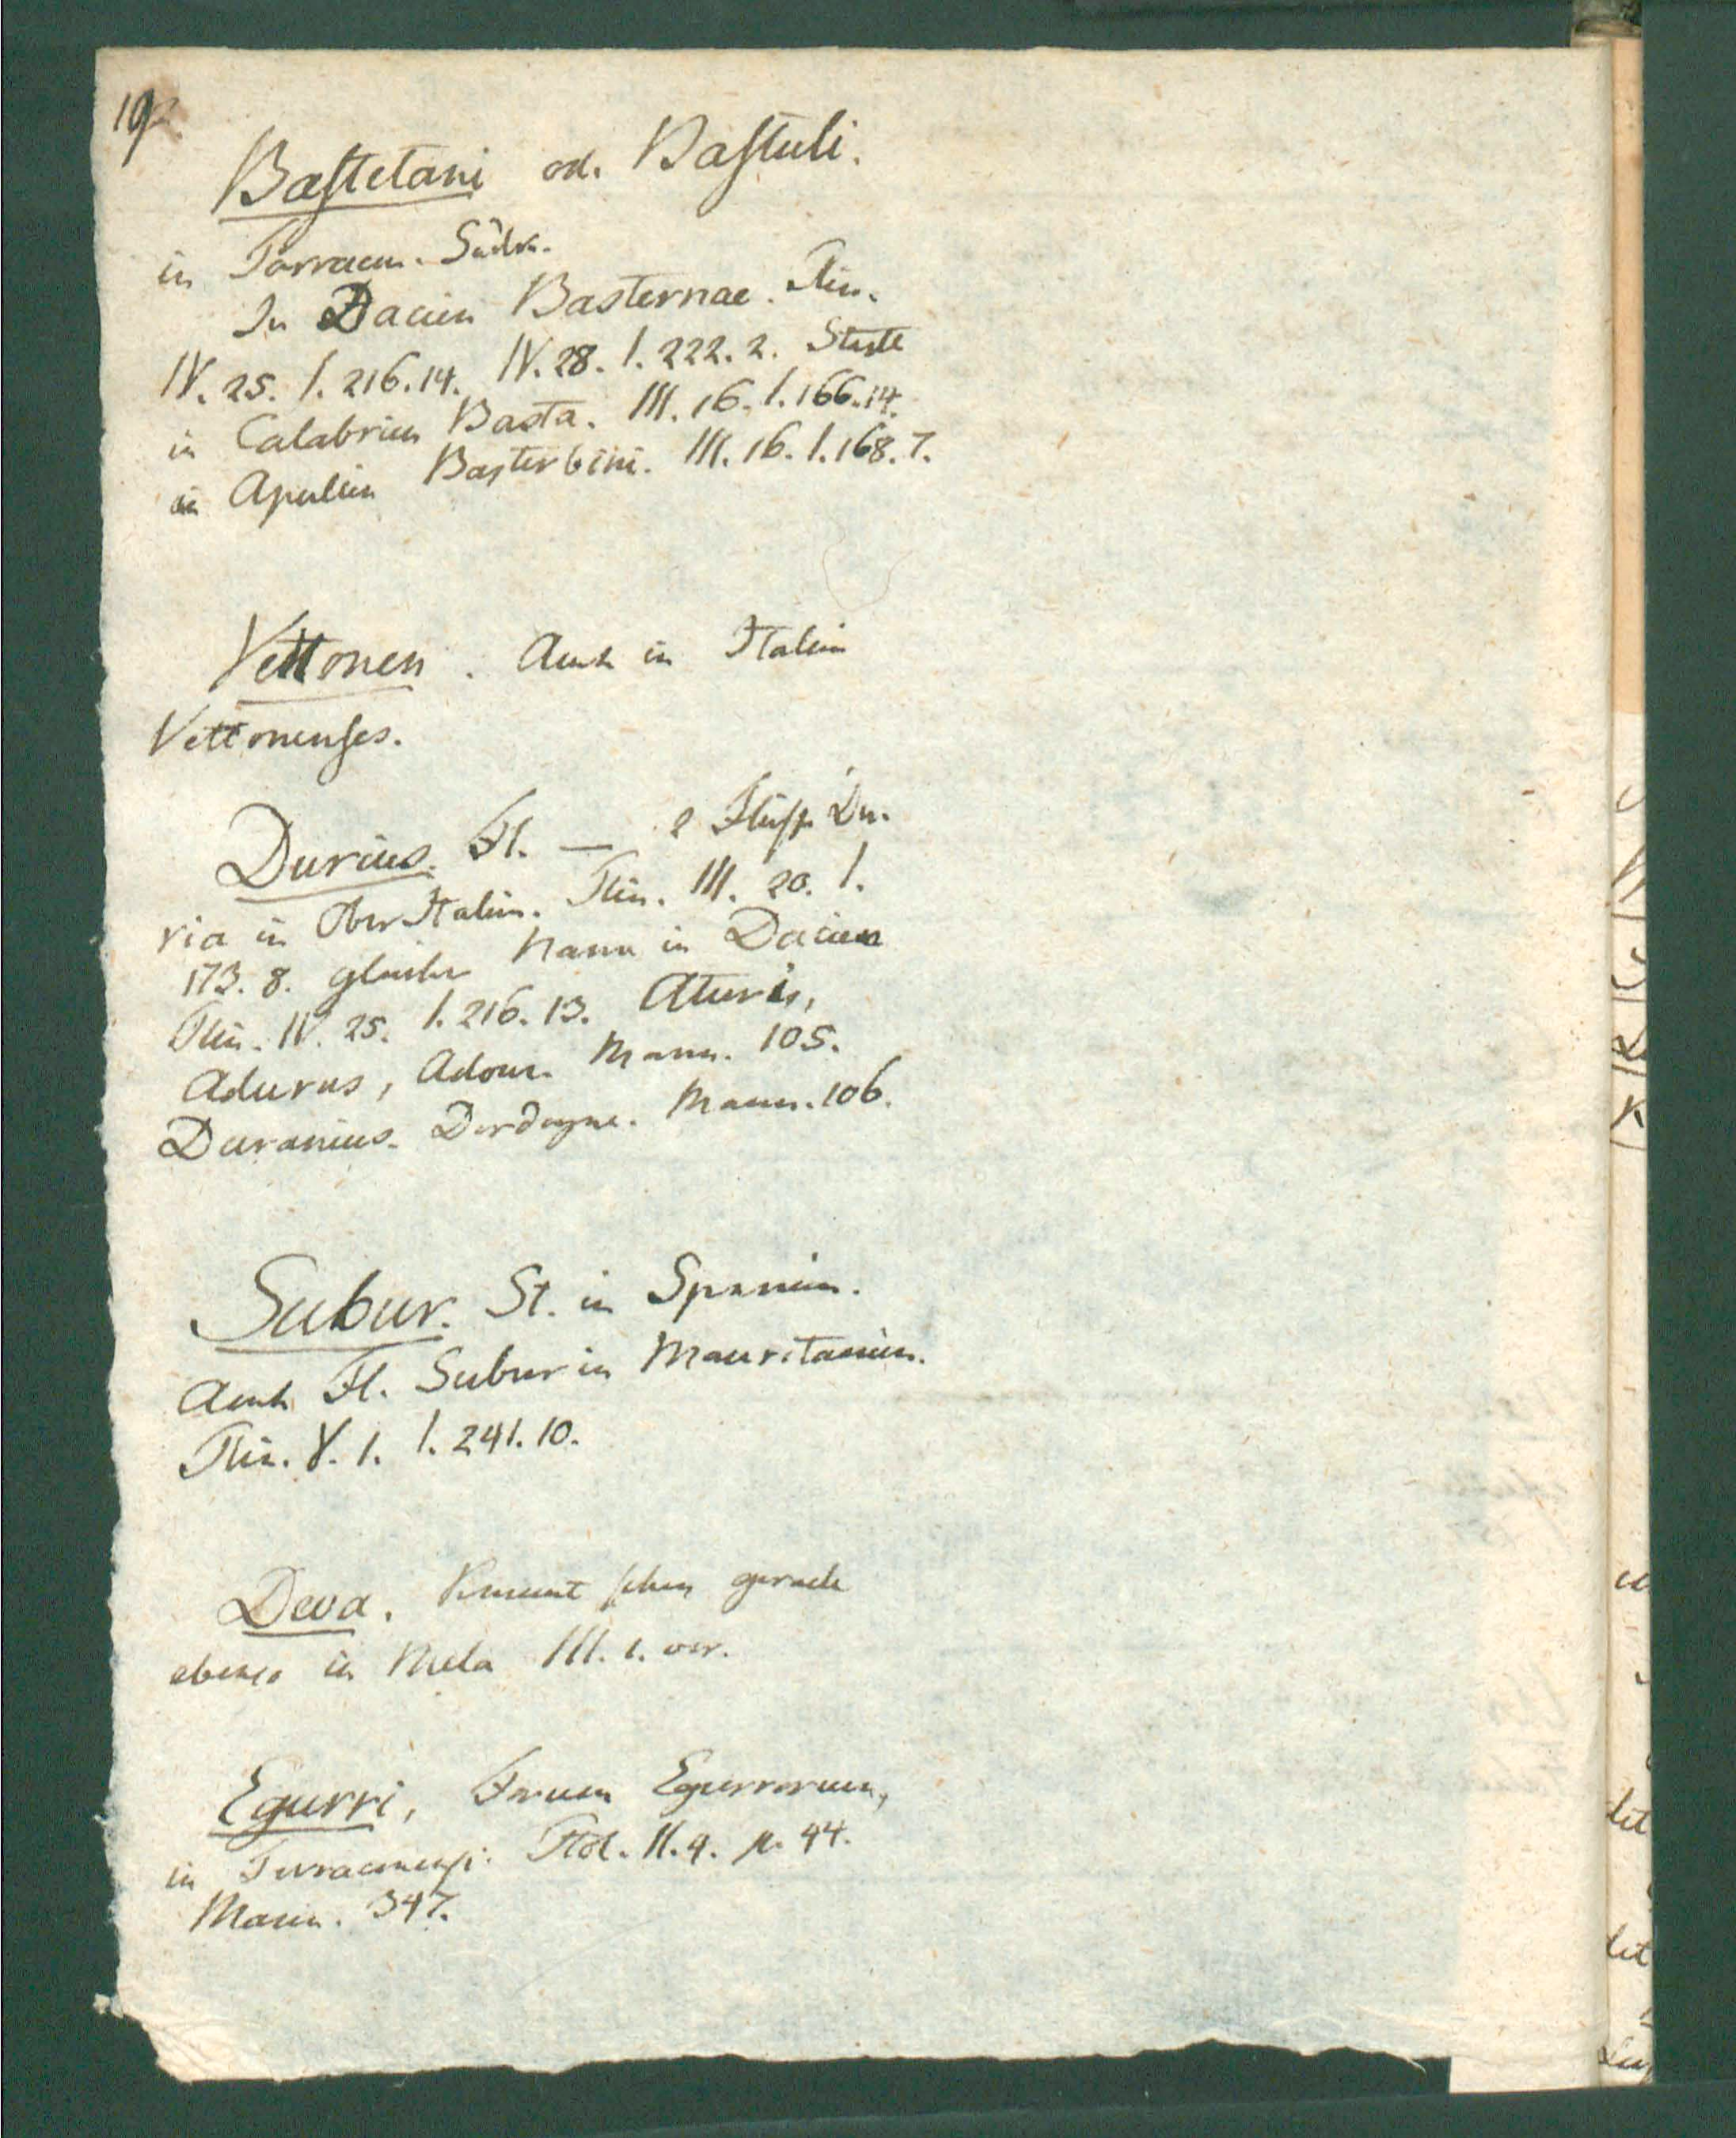 Baſtetani od. Baſtuli.
in Tarracon. Südk.
In Dacien Basternae. Plin.
IV. 25. I. 216. 14. IV. 28. I. 222. 2. Stadt
in Calabrien Basta. III. 16. I. 166. 14.
in Apulien Basterbini. III. 16. I. 168. 7.
Vettonen. Auch in Italien
Vettonenſes.
Durius. Fl. — 2 Flüſſe Du-
ria in Ober Italien. Plin. III. 20. I.
173. 8. gleicher Name in Dacien
Plin. IV. 25. I. 216. 13. Aturis,
Adurus, Adour. Mann. 105.
Duranius. Dordogne. Mann. 106.
Subur. St. in Spanien.
Auch Fl. Subur in Mauritanien.
Plin. V. 1. I. 241. 10.
Deva. Kommt ſchon gerade
ebenso in Mela III. 1. vor.
Egurri, Forum Egurrorum,
in Tarraconenſi. Ptol. II. 4. p. 44.
Mann. 347.